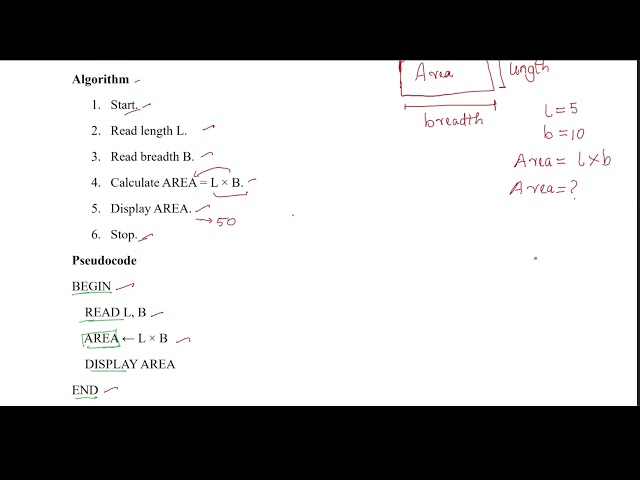 Area
length
breadth
l = 5
b = 10
Area = l × b
Area = ?
Algorithm
1. Start.
2. Read length L.
3. Read breadth B.
4. Calculate AREA = L × B.
5. Display AREA.
→ 50
6. Stop.
Pseudocode
BEGIN
READ L, B
AREA ← L × B
DISPLAY AREA
END